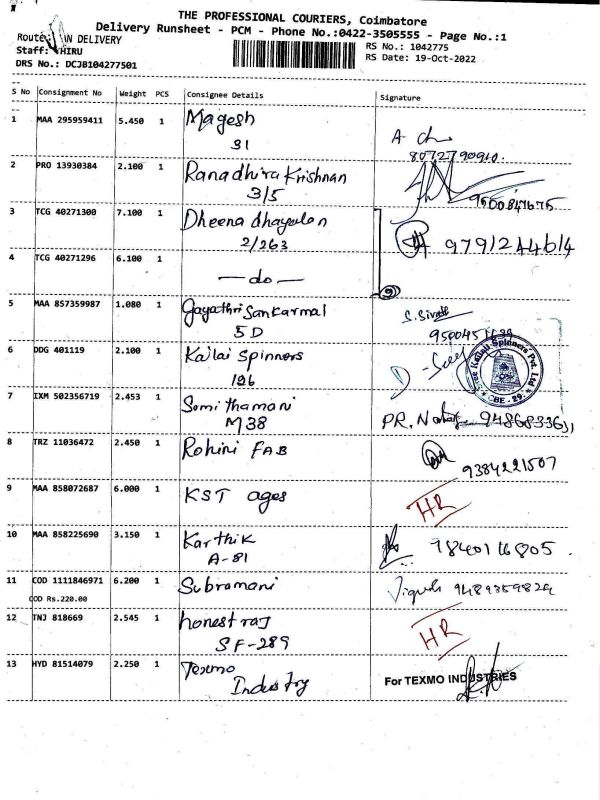 THE PROFESSIONAL COURIERS, Coimbatore
Delivery Runsheet - PCM - Phone No.:0422-3505555 - Page No.:1
Route: IN DELIVERY
Staff: THIRU
DRS No.: DCJB104277501
RS No.: 1042775
RS Date: 19-Oct-2022
S No Consignment No Weight PCS Consignee Details Signature
1 MAA 295959411 5.450 1 Magesh
31
8072790910.
2 PRO 13930384 2.100 1 Ranadhira Krishnan
3/5
9500847675
3 TCG 40271300 7.100 1 Dheena dhayalan
2/263
9791244614
4 TCG 40271296 6.100 1 —do—
5 MAA 857359987 1.080 1 Gayathri Sankarmal
5D
6 DDG 401119 2.100 1 Kailai Spinners
196
CBE - 29.
7 IXM 502356719 2.453 1 Semithamani
M38
PR.
8 TRZ 11036472 2.450 1 Rohini FAB
9384221507
9 MAA 858072687 6.000 1 KST ages
HR
10 MAA 858225690 3.150 1 Karthik
A-81
9840116805.
11 COD 1111846971 6.200 1 Subramani
COD Rs.220.00
9489359829
12 TNJ 818669 2.545 1 honest raj
SF-289
HR
13 HYD 81514079 2.250 1 Texmo
Industry
For TEXMO INDUSTRIES